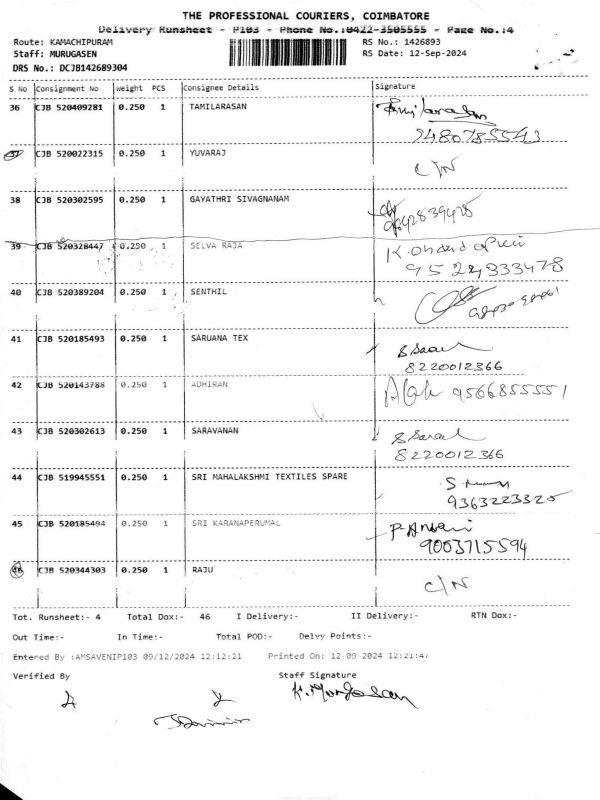 THE PROFESSIONAL COURIERS, COIMBATORE
Delivery Runsheet - P103 - Phone No.:0422-3505555 - Page No.:4
Route: KAMACHIPURAM RS No.: 1426893
Staff: MURUGASEN RS Date: 12-Sep-2024
DRS No.: DCJB142689304
S No Consignment No Weight PCS Consignee Details Signature
36 CJB 520409281 0.250 1 TAMILARASAN
9480785543
37 CJB 520022315 0.250 1 YUVARAJ C/N
38 CJB 520302595 0.250 1 GAYATHRI SIVAGNANAM
9842839425
39 CJB 520328447 0.250 1 SELVA RAJA
9524333478
40 CJB 520389204 0.250 1 SENTHIL
41 CJB 520185493 0.250 1 SARUANA TEX
8220012366
42 CJB 520143788 0.250 1 ADHIRAN 9566855551
43 CJB 520302613 0.250 1 SARAVANAN
8220012366
44 CJB 519945551 0.250 1 SRI MAHALAKSHMI TEXTILES SPARE
9363223325
45 CJB 520185494 0.250 1 SRI KARANAPERUMAL
9003715594
46 CJB 520344303 0.250 1 RAJU C/N
Tot. Runsheet:- 4 Total Dox:- 46 I Delivery:- II Delivery:- RTN Dox:-
Out Time:- In Time:- Total POD:- Delvy Points:-
Entered By :AMSAVENIP103 09/12/2024 12:12:21 Printed On: 12-09-2024 12:21:47
Verified By Staff Signature